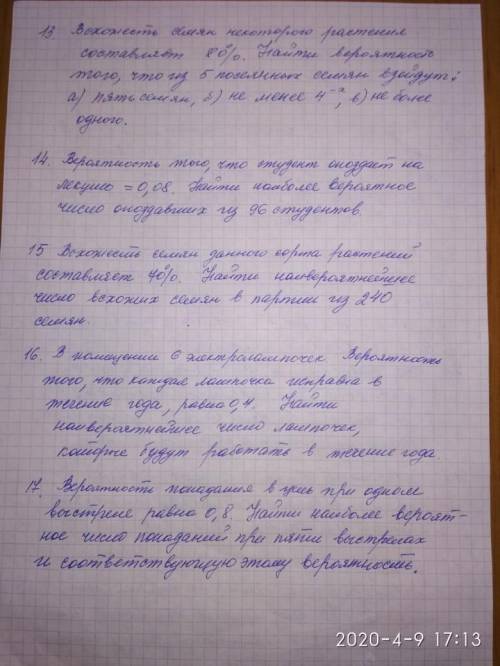 13 Всхожесть семян некоторого растения
составляет 80%. Найти вероятность
того, что из 5 посеянных семян взойдут:
а) пять семян, б) не менее 4-х, в) не более
одного.
14. Вероятность того, что студент опоздает на
лекцию = 0,08. Найти наиболее вероятное
число опоздавших из 96 студентов.
15 Всхожесть семян данного сорта растений
составляет 70%. Найти наивероятнейшее
число всхожих семян в партии из 240
семян.
16. В помещении 6 электролампочек Вероятность
того, что каждая лампочка исправна в
течение года, равна 0,7. Найти
наивероятнейшее число лампочек,
которые будут работать в течение года.
17. Вероятность попадания в цель при одном
выстреле равна 0,8. Найти наиболее вероят-
ное число попаданий при пяти выстрелах
и соответствующую этому вероятность.
2020-4-9 17:13